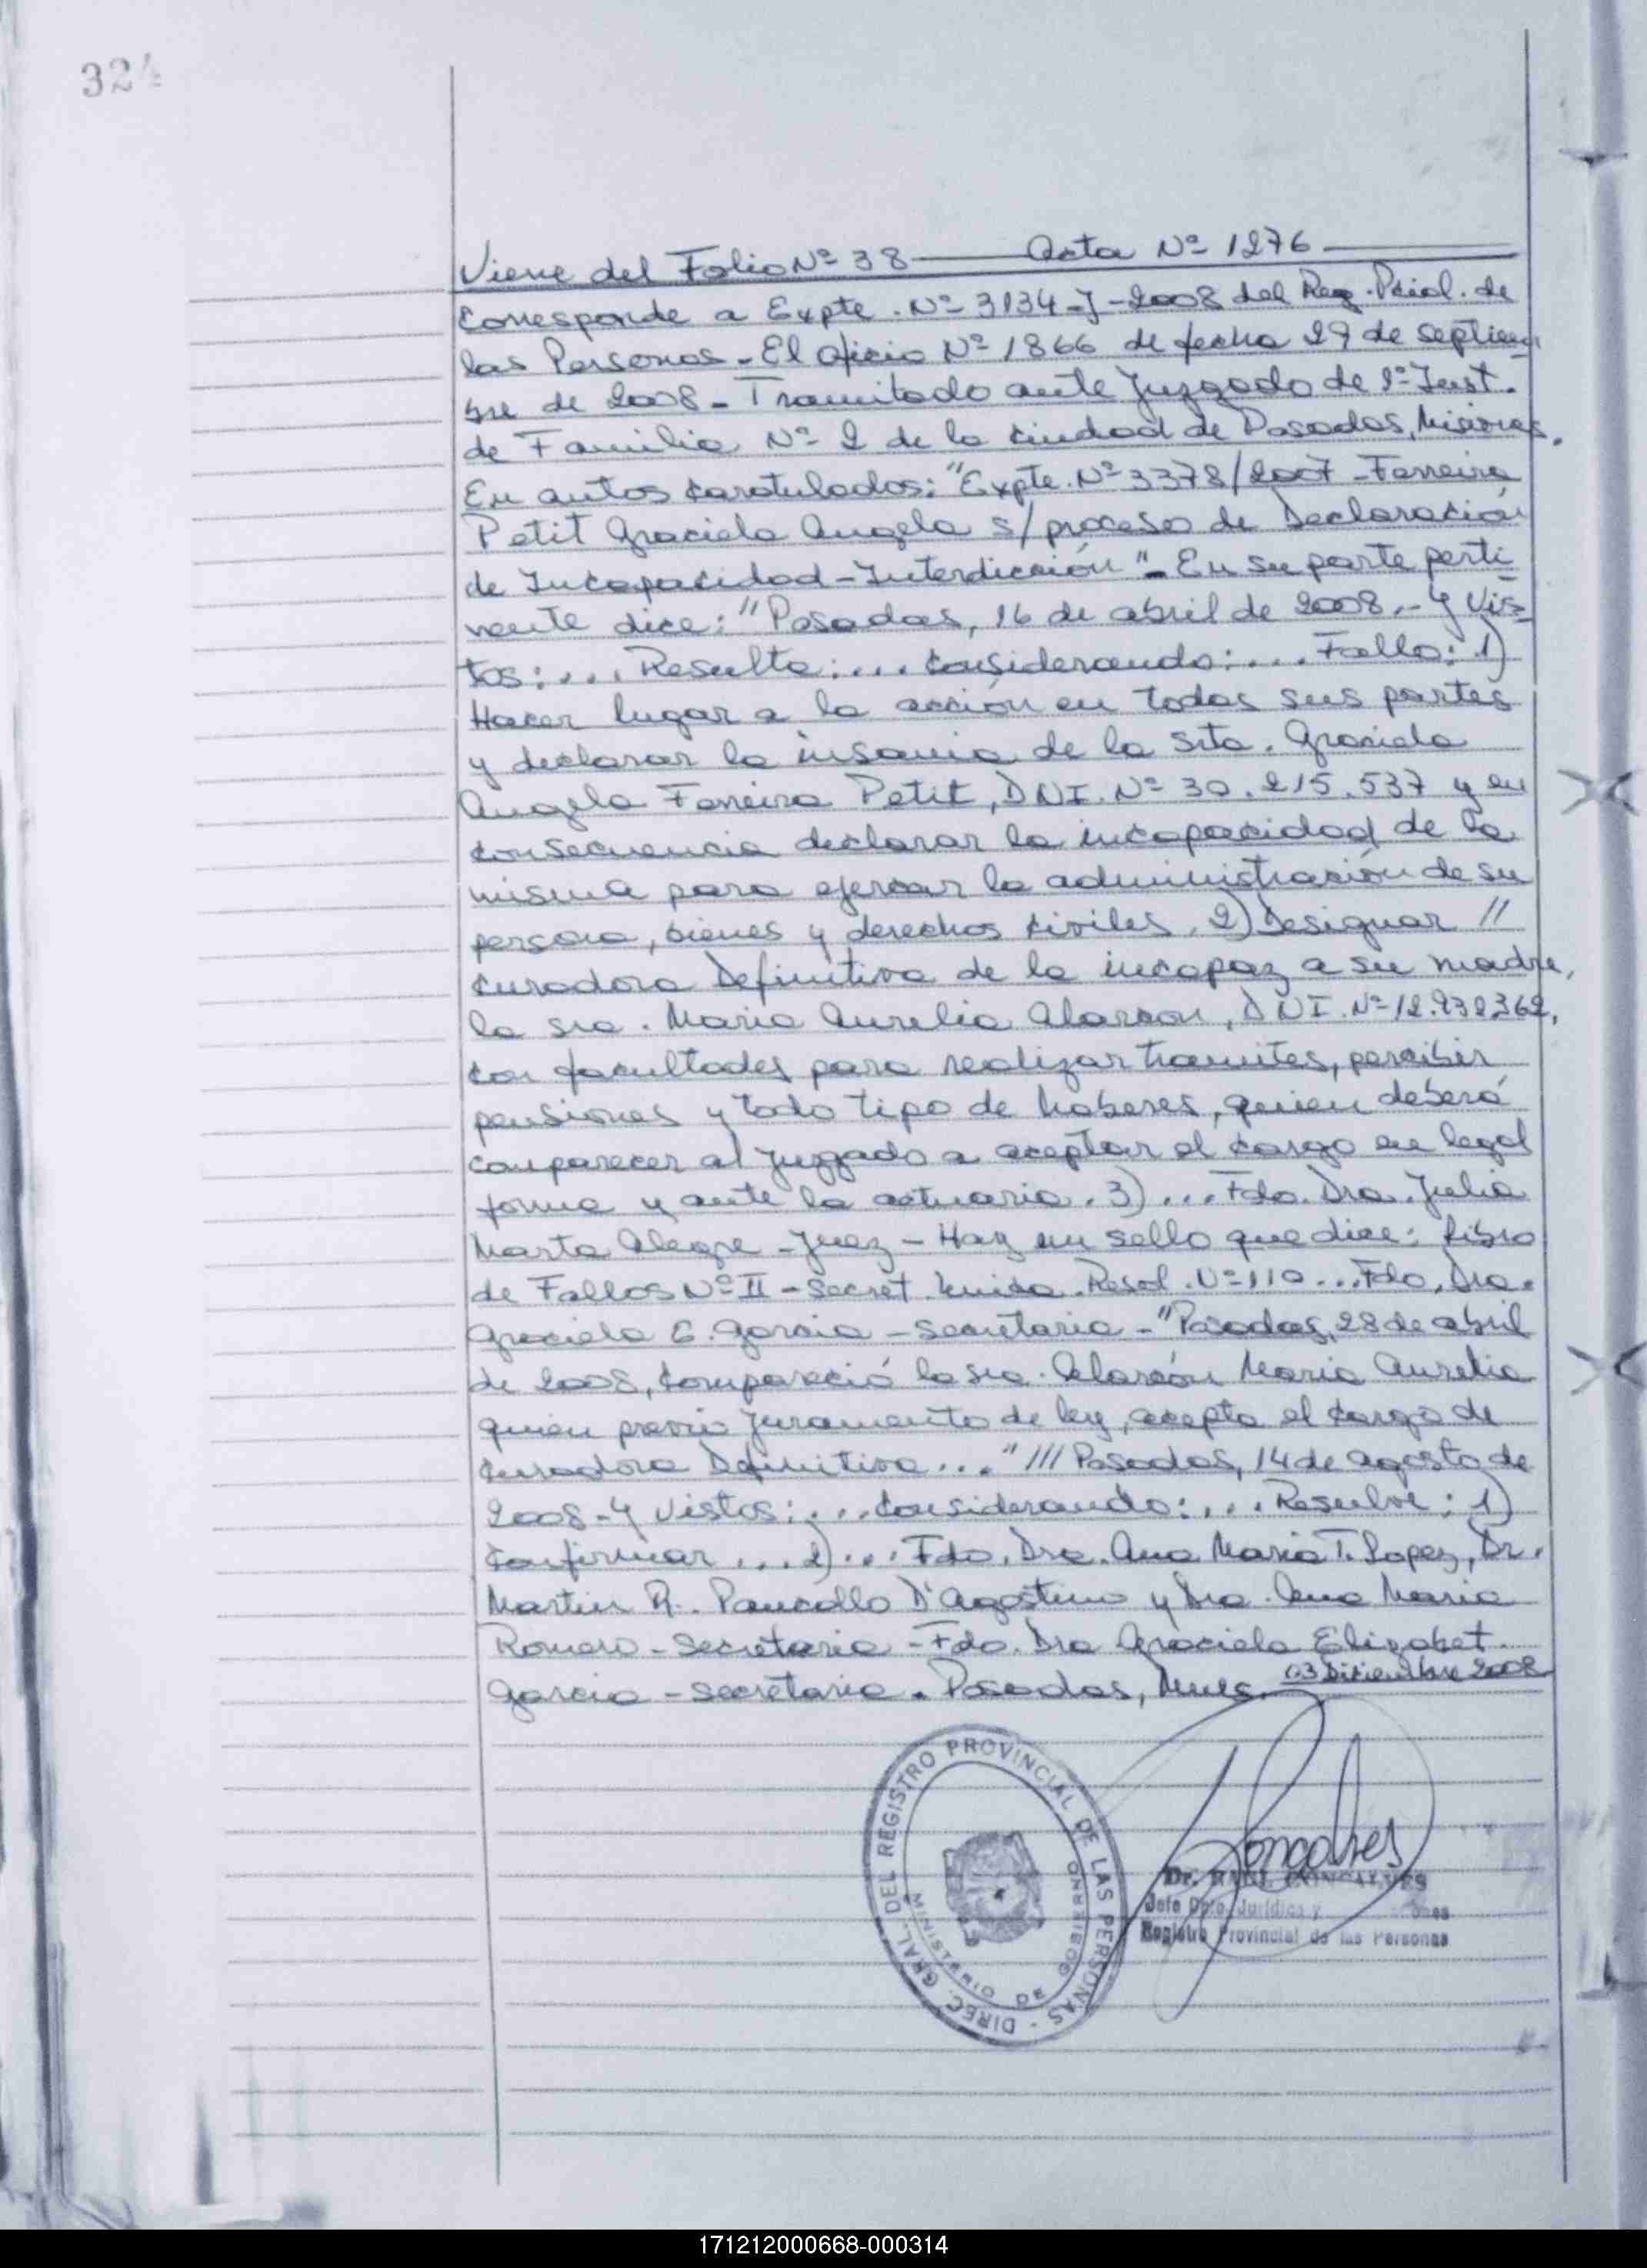 324
Viene del Folio Nº 38 — Acta Nº 1276 —
Corresponde a Expte. Nº 3134-J-2008 del Reg. Pcial. de
las Personas - El oficio Nº 1866 de fecha 29 de septiem
bre de 2008 - Tramitado ante Juzgado de 1º Inst.
de Familia Nº 2 de la ciudad de Posadas, Misiones.
En autos caratulados: "Expte. Nº 3378/2007 - Ferreira
Petit Graciela Angela s/ proceso de Declaración
de Incapacidad - Interdicción" - En su parte perti
nente dice: "Posadas, 16 de abril de 2008.- Y Vis-
tos: ... Resulta: ... Considerando: ... Fallo: 1)
Hacer lugar a la acción en todas sus partes
y declarar la insania de la Srta. Graciela
Angela Ferreira Petit, DNI. Nº 30.215.537 y en
consecuencia declarar la incapacidad de la
misma para ejercer la administración de su
persona, bienes y derechos civiles. 2) Designar //
curadora Definitiva de la incapaz a su madre,
la sra. Maria Aurelia Alarcon, DNI. Nº 12.932362,
con facultades para realizar tramites, percibir
pensiones y todo tipo de haberes, quien deberá
comparecer al Juzgado a aceptar el cargo en legal
forma y ante la actuaria. 3) ... Fdo. Dra. Julia
Marta Alegre - Juez - Hay un sello que dice: Libro
de Fallos Nº II - Secret. Unica. Resol. Nº 110 ... Fdo. Dra.
Graciela E. Garcia - Secretaria - "Posadas, 28 de abril
de 2008, Compareció la sra. Alarcón Maria Aurelia
quien previo juramento de ley, acepta el cargo de
Curadora Definitiva ..." /// Posadas, 14 de agosto de
2008 - Y Vistos: ... Considerando: ... Resulve: 1)
Confirmar ... 2) ... Fdo. Dra. Ana Maria T. Lopez, Dr.
Martin R. Pancallo D'Agostino y Dra. Ana Maria
Romero - Secretaria - Fdo. Dra Graciela Elizabet
Garcia - Secretaria. Posadas, Mnes. 03 Diciembre 2008
DIREC. GRAL. DEL REGISTRO PROVINCIAL DE LAS PERSONAS -
MINISTERIO DE GOBIERNO
Dr. GONCALVES
Jefe Dpto. Jurídico y
Registro Provincial de las Personas
171212000668-000314